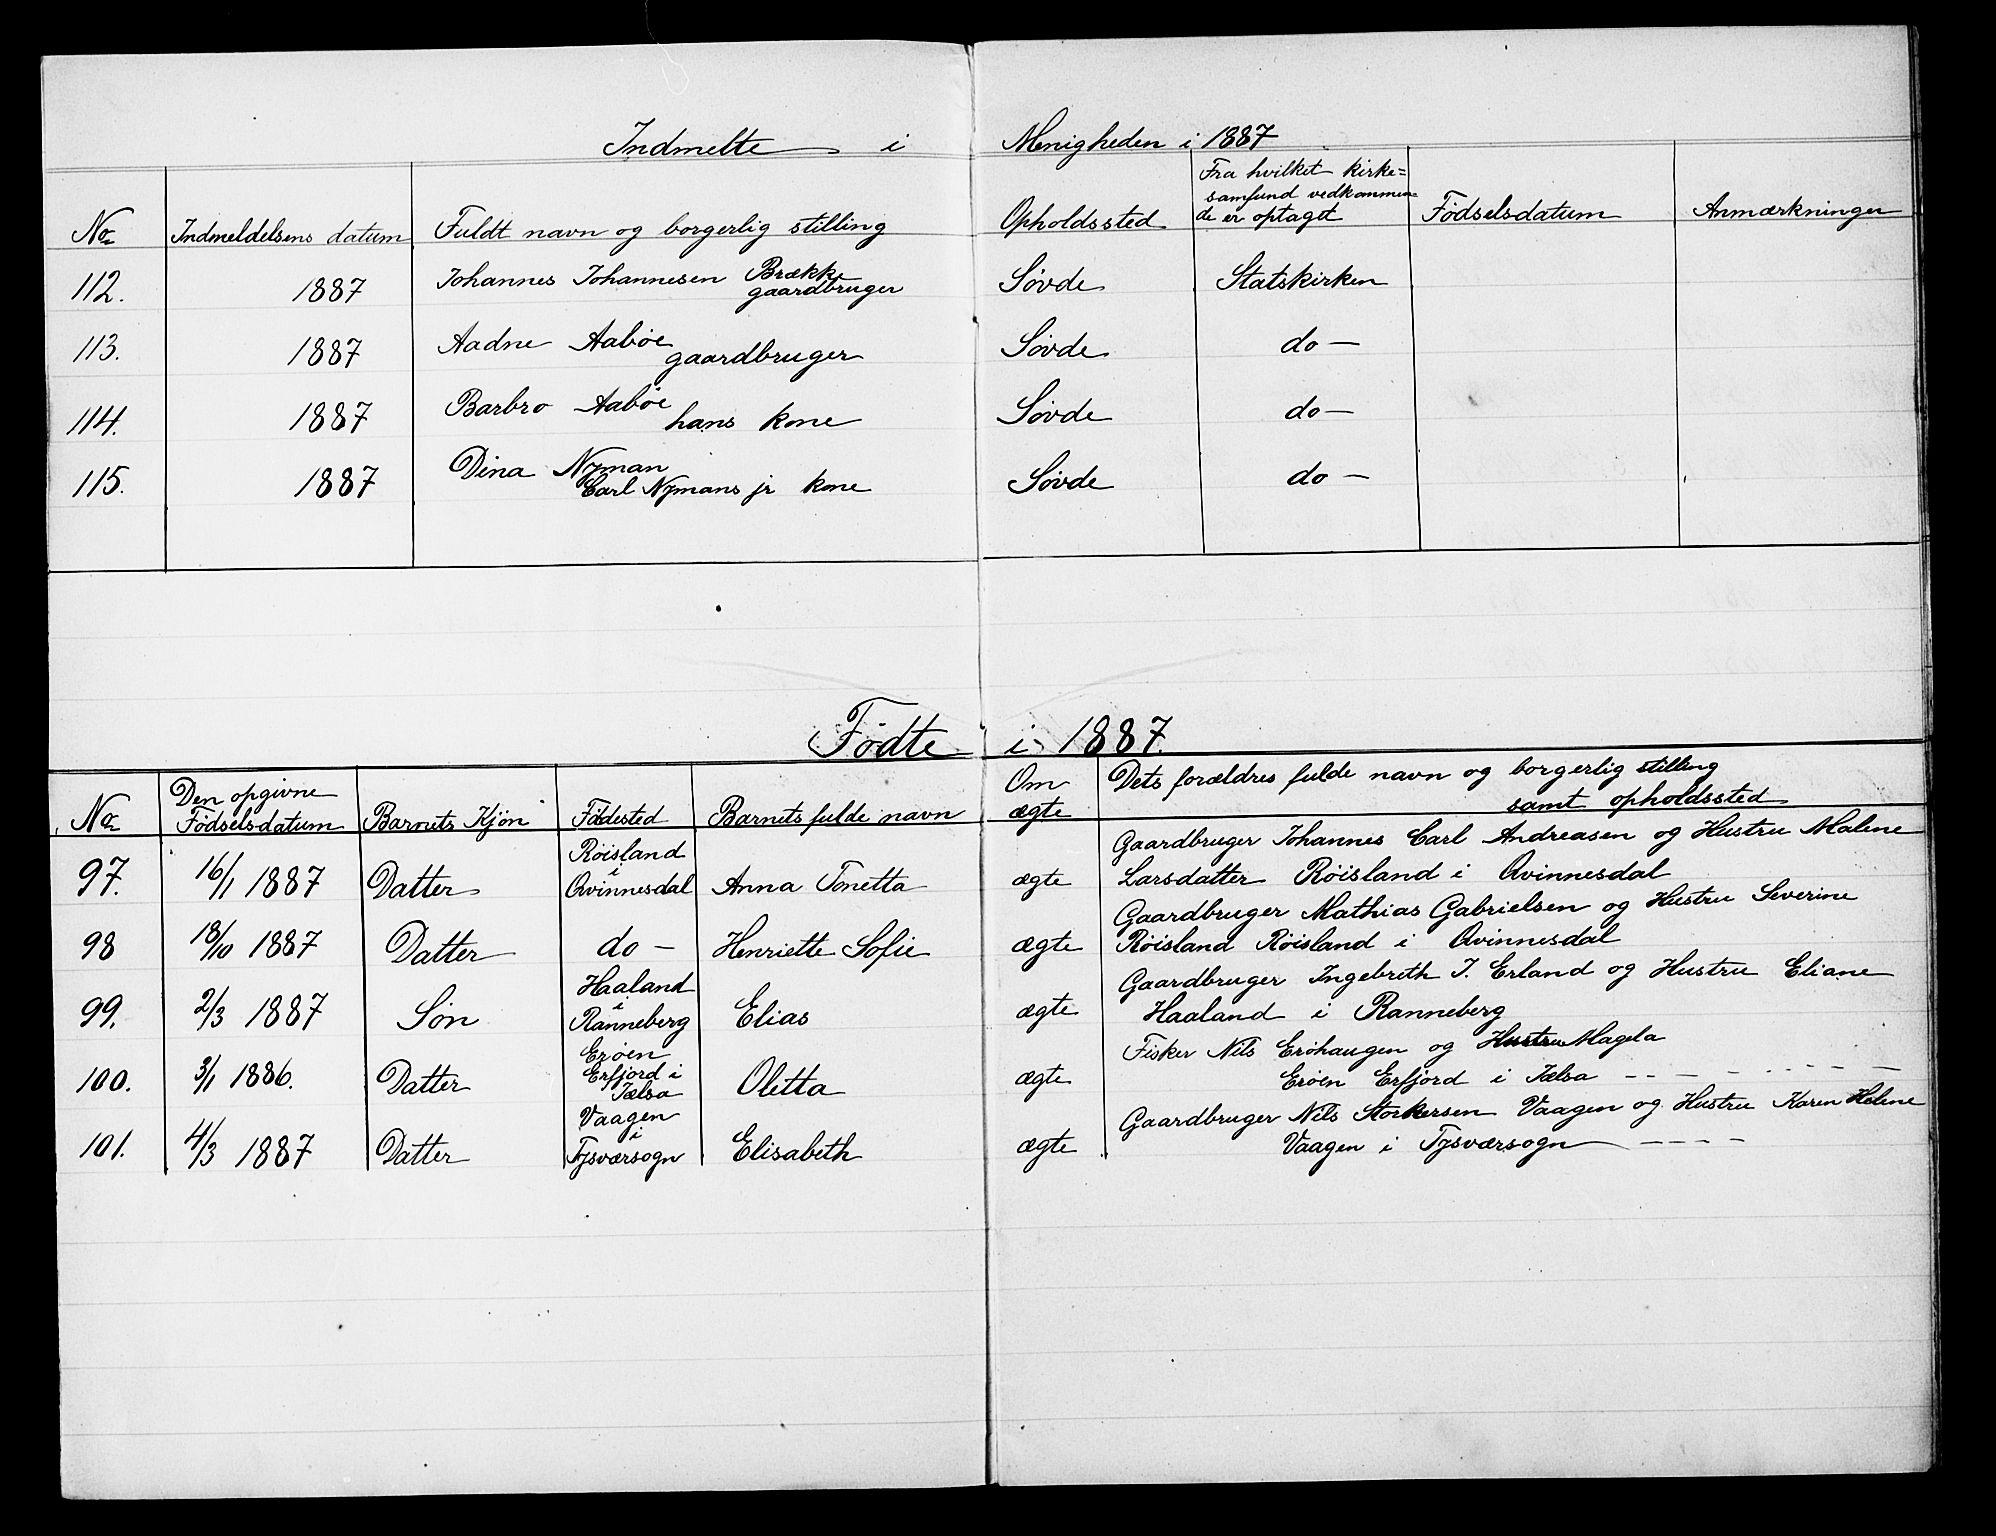 Indmelte i Menigheden i 1887
No Indmeldelsens datum Fuldt navn og borgerlig stilling Opholdssted Fra hvilket kirke=
samfund vedkommen=
de er optaget Fødselsdatum Anmærkninger
112. 1887 Johannes Johannesen Brække
gaardbruger Søvde Statskirken
113. 1887 Aadne Aabøe
gaardbruger Søvde do —
114. 1887 Barbro Aabøe
hans kone Søvde do —
115. 1887 Dina Nyman
Carl Nymans jr kone Søvde do —
Fødte i 1887.
No Den opgivne
Fødselsdatum Barnets Kjøn Fødested Barnets fulde navn Om
ægte Dets forældres fulde navn og borgerlig stilling
samt opholdssted
97. 16/1 1887 Datter Røisland
i
Qvinnesdal Anna Tonetta ægte Gaardbruger Johannes Carl Andreasen og Hustru Malene
Larsdatter Røisland i Qvinnesdal
98 18/10 1887 Datter do — Henriette Sofie ægte Gaardbruger Mathias Gabrielsen og Hustru Severine
Røisland Røisland i Qvinnesdal
99. 2/3 1887 Søn Haaland
i
Ranneberg Elias ægte Gaardbruger Ingebrith J. Erland og Hustru Eliane
Haaland i Ranneberg
100. 3/1 1886. Datter Erøen
Erfjord i
Jælsa Oletta ægte Fisker Nils Erøhaugen og Hustru Magela
Erøen Erfjord i Jælsa
101. 4/3 1887 Datter Vaagen
i
Tysværsogn Elisabeth ægte Gaardbruger Nils Storkersen Vaagen og Hustru Karen Helene
Vaagen i Tysværsogn